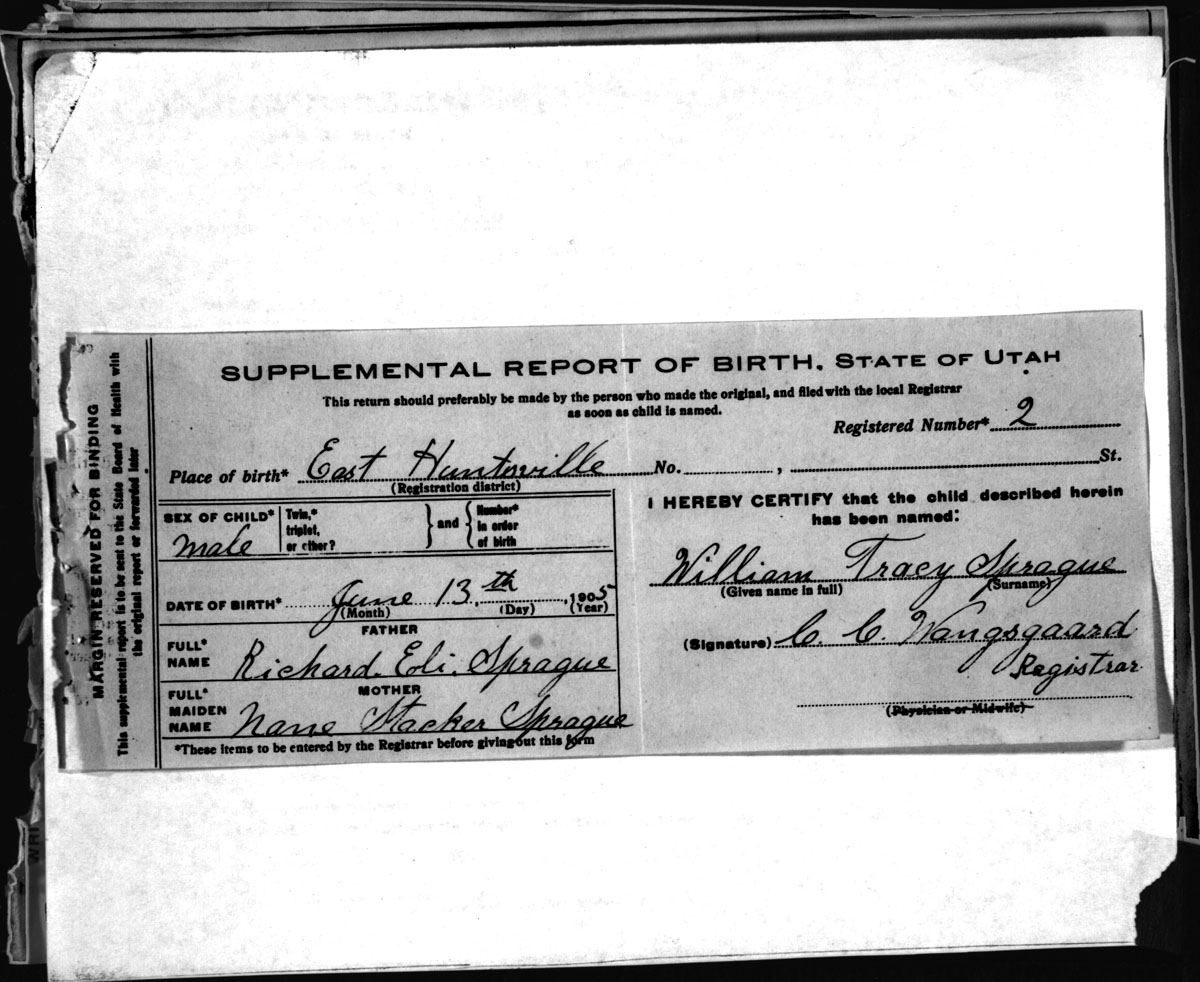 SUPPLEMENTAL REPORT OF BIRTH. STATE OF UTAH
This return should preferably be made by the person who made the original, and filed with the local Registrar
as soon as child is named.
Registered Number* 2
Place of birth* East Huntsville No. , St.
(Registration district)
SEX OF CHILD* Male
Twin,* triplet, or other? } and { Number* in order of birth
DATE OF BIRTH* June 13.th, 1905
(Month) (Day) (Year)
FATHER
FULL* NAME Richard. Eli. Sprague
MOTHER
FULL* MAIDEN NAME Stacker Sprague
*These items to be entered by the Registrar before giving out this form
I HEREBY CERTIFY that the child described herein
has been named:
William Tracy Sprague
(Given name in full) (Surname)
(Signature) C. C. Wangsgaard
Registrar
(Physician or Midwife)
MARGIN RESERVED FOR BINDING
This supplemental report is to be sent to the State Board of Health with
the original report or forwarded later
WRI